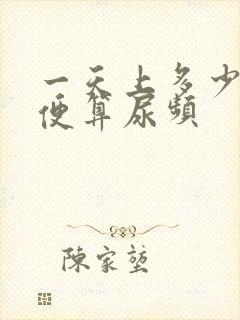 一天上多少
便算尿频
陈家堃